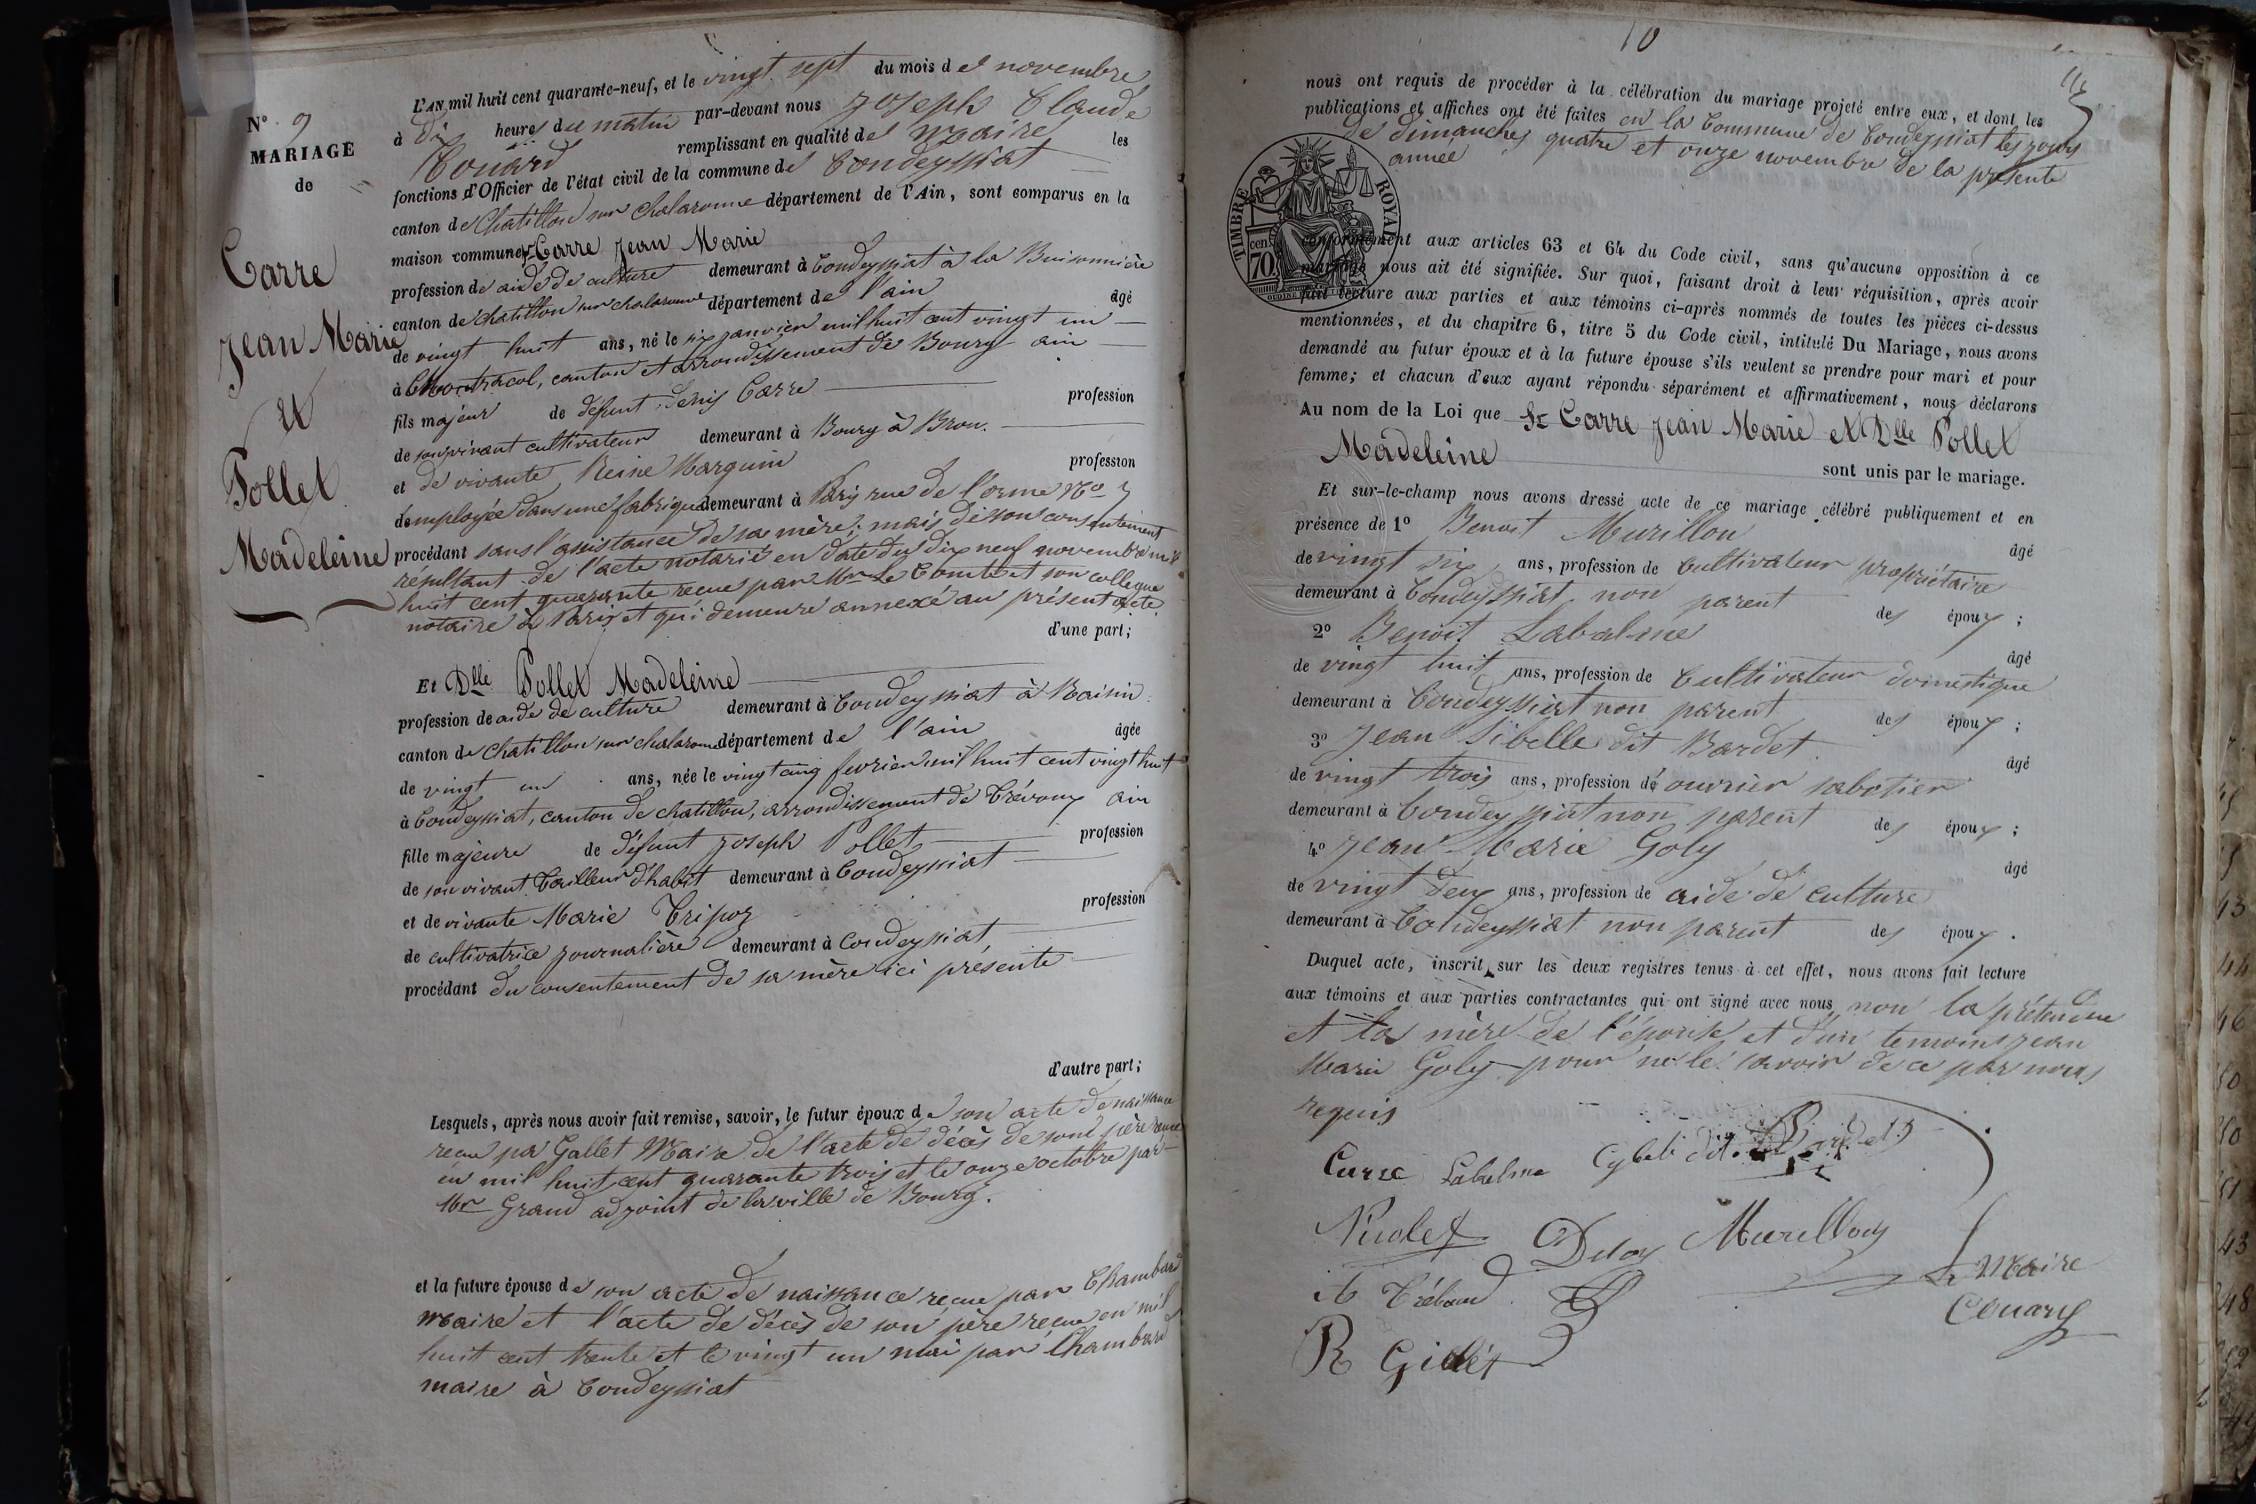 N° 9
MARIAGE
de
Carre
Jean Marie
et
Pollet
Madeleine
L'AN mil huit cent quarante-neuf, et le vingt sept du mois de novembre
à Dix heures du matin par-devant nous Joseph Claude
Couard remplissant en qualité de Maire les
fonctions d'Officier de l'état civil de la commune de Condeyssiat
canton de Chatillon sur Chalaronne département de l'Ain, sont comparus en la
maison commune Sr Carre Jean Marie
profession de aide de culture demeurant à Condeyssiat à la Buisonnière
canton de Chatillon sur chalaronne département de l'ain âgé
de vingt huit ans, né le six janvier mil huit cent vingt un
à Montracol, canton et arrondissement de Bourg ain
fils majeur de défunt Denis Carre profession
de son vivant cultivateur demeurant à Bourg à Brou.
et de vivante Reine Marguin profession
d'employée dans une fabrique demeurant à Paris rue de l'orme No 7
procédant sans l'assistance de sa mère; mais de son consentement
résultant de l'acte notarié en date du dix neuf novembre mil
huit cent quarante recue par Mr Le Comte et son collegue
notaire à Paris et qui demeure annexé au présent acte.
d'une part;
Et Dlle Pollet Madeleine
profession de aide de culture demeurant à Condeyssiat à Raisin
canton de Chatillon sur chalaronne département de l'ain âgée
de vingt un ans, née le vingt cinq fevrier mil huit cent vingt huit
à Condeyssiat, canton de chatillon, arrondissement de Trévoux ain
fille majeure de défunt Joseph Pollet profession
de son vivant Tailleur d'habit demeurant à Condeyssiat
et de vivante Marie Tripoz profession
de cultivatrice journalière demeurant à Condeyssiat,
procédant du consentement de sa mère ici présente
d'autre part;
Lesquels, après nous avoir fait remise, savoir, le futur époux de son acte de naissance
recue par Gallet Maire de l'acte de décès de son père recue
en mil huit cent quarante trois et le onze octobre par
Mr Grand adjoint de la ville de Bourg.
et la future épouse de son acte de naissance recue par Chambard
maire et l'acte de décès de son père recue en mil
huit cent trente et le vingt un mai par Chambard
maire à Condeyssiat
10
nous ont requis de procéder à la célébration du mariage projeté entre eux, et dont les
publications et affiches ont été faites en la Commune de Condeyssiat les jours
de dimanches quatre et onze novembre de la présente
année
TIMBRE ROYAL
70 cen
conformément aux articles 63 et 64 du Code civil, sans qu'aucune opposition à ce
mariage nous ait été signifiée. Sur quoi, faisant droit à leur réquisition, après avoir
fait lecture aux parties et aux témoins ci-après nommés de toutes les pièces ci-dessus
mentionnées, et du chapitre 6, titre 5 du Code civil, intitulé Du Mariage, nous avons
demandé au futur époux et à la future épouse s'ils veulent se prendre pour mari et pour
femme; et chacun d'eux ayant répondu séparément et affirmativement, nous déclarons
Au nom de la Loi que Sr Carre Jean Marie et Dlle Pollet
Madeleine sont unis par le mariage.
Et sur-le-champ nous avons dressé acte de ce mariage célébré publiquement et en
présence de 1° Benoit Murillon âgé
de vingt six ans, profession de Cultivateur propriétaire
demeurant à Condeyssiat non parent des époux;
2° Benoit Labalme âgé
de vingt huit ans, profession de Cultivateur domestique
demeurant à Condeyssiat non parent des époux;
3° Jean Sibelle dit Bardet âgé
de vingt trois ans, profession de ouvrier sabotier
demeurant à Condeyssiat non parent des époux;
4° Jean Marie Goly âgé
de vingt deux ans, profession de aide de culture
demeurant à Condeyssiat non parent des époux.
Duquel acte, inscrit sur les deux registres tenus à cet effet, nous avons fait lecture
aux témoins et aux parties contractantes qui ont signé avec nous, non la prétendue
et la mère de l'épouse et d'un temoins jean
Marie Goly pour ne le savoir de ce par nous
requis
Carre Labalme dit Bardet
Nicolet Murillon
Le Maire
A Trébaud Couard
R Gillet